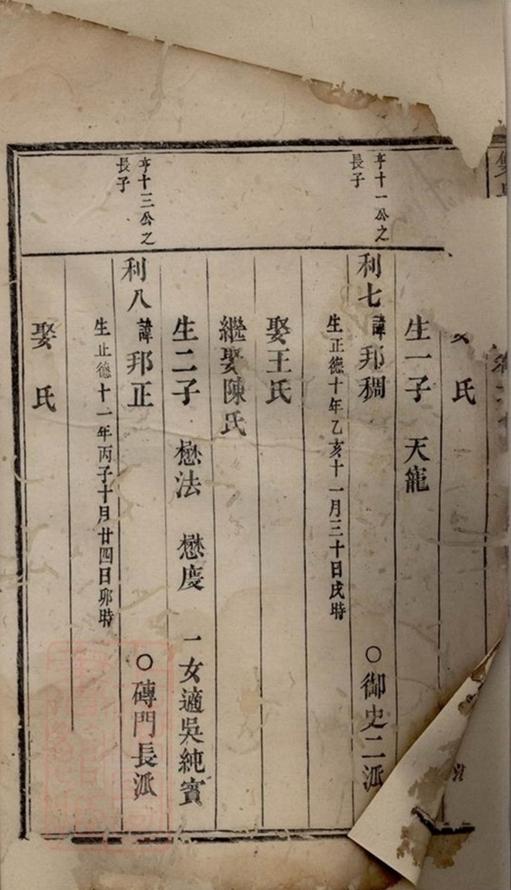 氏
生一子 天龍
亨十一公之
長子
利七 諱邦稠 ○御史二派
生正德十年乙亥十一月三十日戌時
娶王氏
繼娶陳氏
生二子 懋法 懋度 一女適吳純賓
亨十三公之
長子
利八 諱邦正 ○磚門長派
生正德十一年丙子十月廿四日卯時
娶 氏